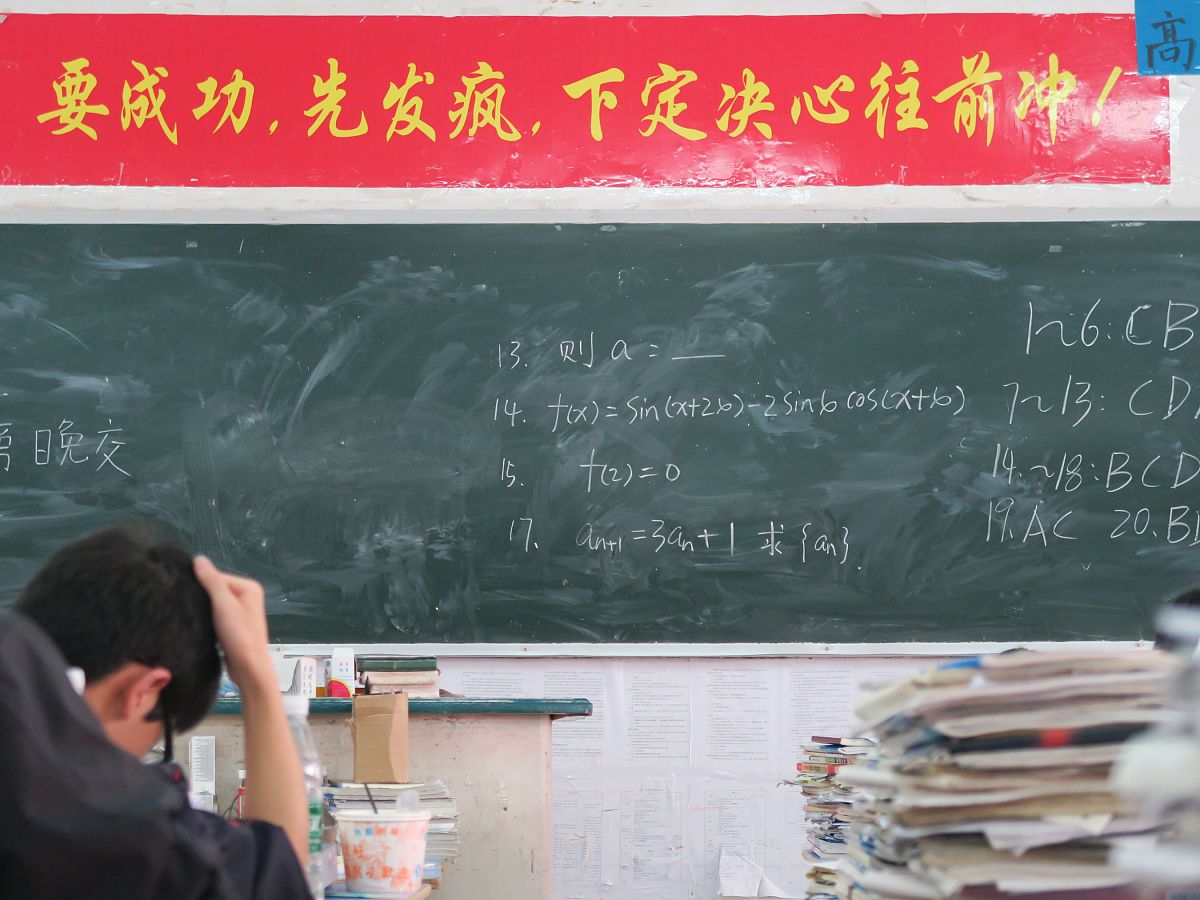 要成功,先发疯,下定决心往前冲!
高
13. 则 a = __
14. f(x) = sin(x+2b) - 2sinb cos(x+b)
15. f(2) = 0
17. an+1 = 3an + 1 求 {an}.
日晚交
1~6: CB
7~13: CD
14.~18: BCD
19. AC 20. B